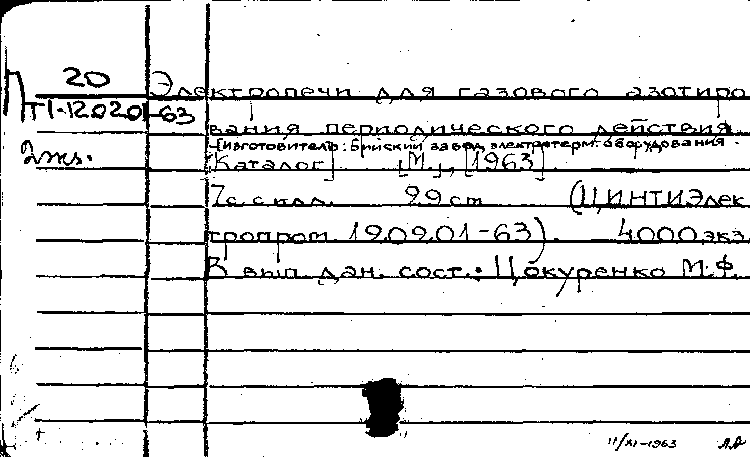 П 20
Т1-120201-63
2экз.
Электропечи для газового азотиро
вания периодического действия.
[Изготовитель: Бийский завод электротерм. оборудования.
[Каталог] [М.], [1963].
7с. с илл. 29 ст (ЦИНТИЭлек
тропром 19.09.01-63). 4000 экз.
В вып. дан. сост.: Цокуренко М.Ф.
11/XI-1963